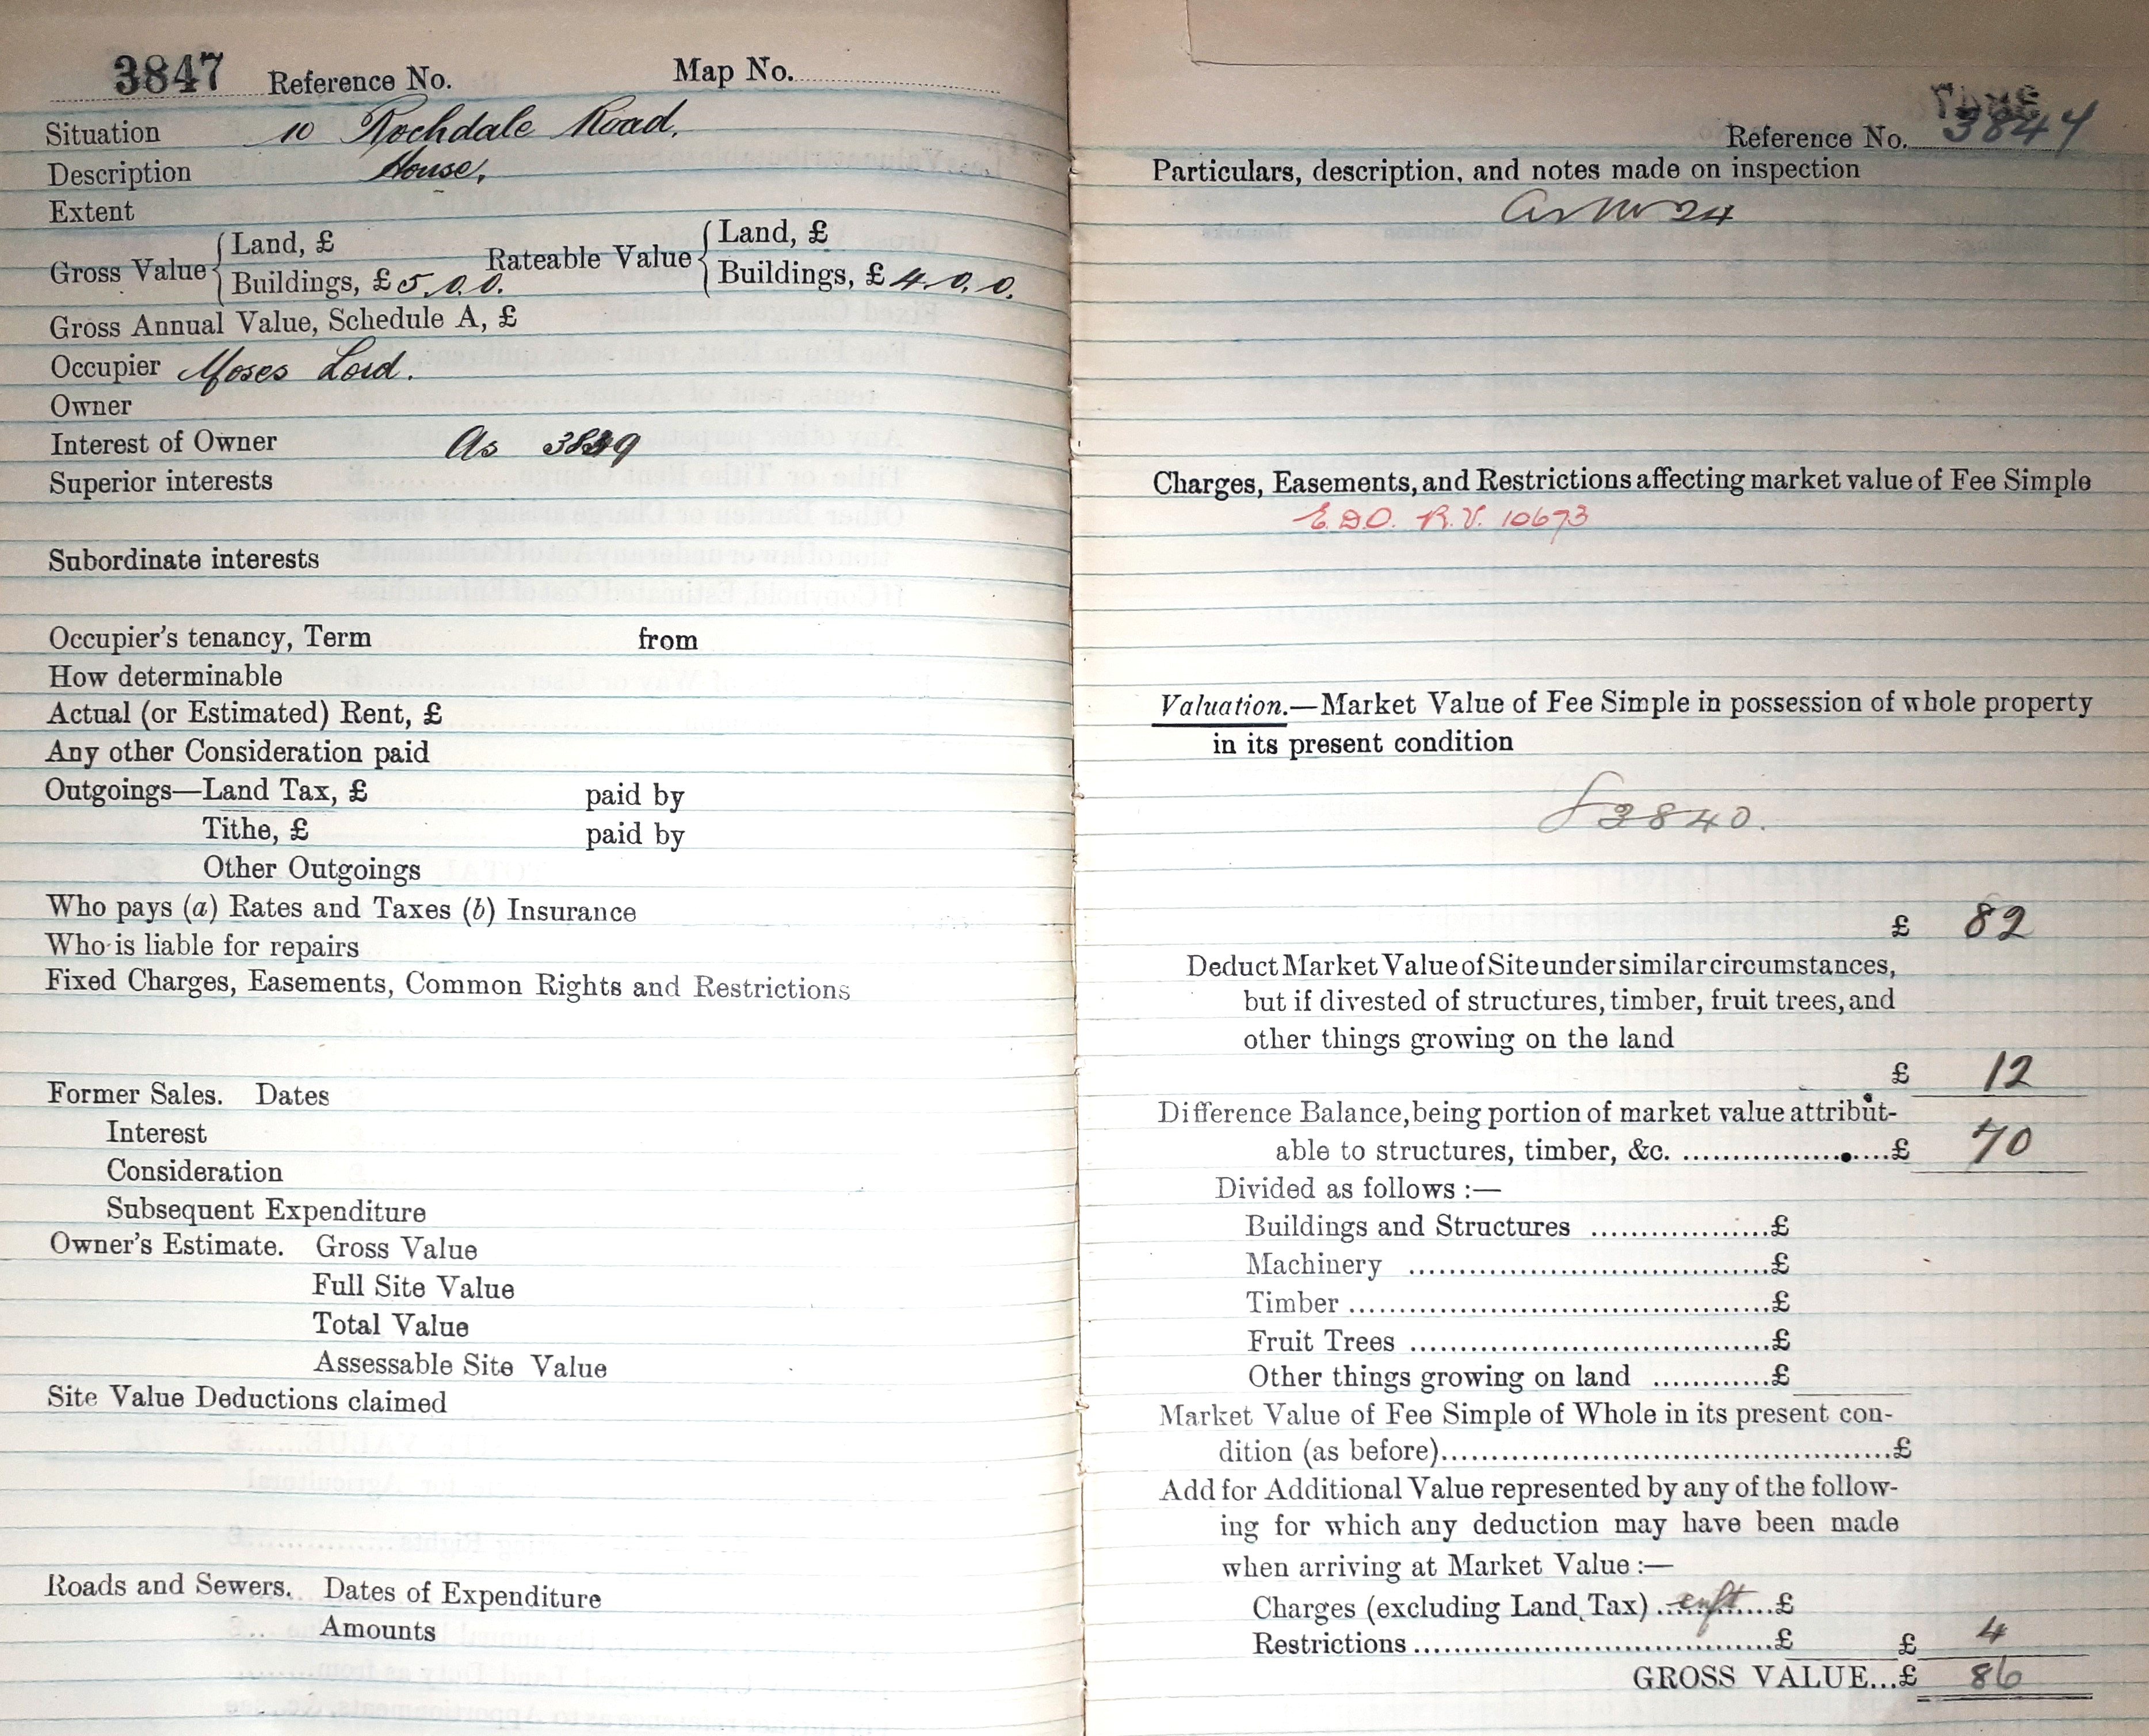 3847 Reference No. Map No.
Situation 10 Rochdale Road.
Description House,
Extent
Gross Value { Land, £ Rateable Value { Land, £
Buildings, £ 5. 0. 0. Buildings, £ 4. 0. 0.
Gross Annual Value, Schedule A, £
Occupier Moses Lord.
Owner
Interest of Owner As
Superior interests
Subordinate interests
Occupier's tenancy, Term from
How determinable
Actual (or Estimated) Rent, £
Any other Consideration paid
Outgoings—Land Tax, £ paid by
Tithe, £ paid by
Other Outgoings
Who pays (a) Rates and Taxes (b) Insurance
Who is liable for repairs
Fixed Charges, Easements, Common Rights and Restrictions
Former Sales. Dates
Interest
Consideration
Subsequent Expenditure
Owner's Estimate. Gross Value
Full Site Value
Total Value
Assessable Site Value
Site Value Deductions claimed
Roads and Sewers. Dates of Expenditure
Amounts
Reference No. 3847
Particulars, description, and notes made on inspection
Charges, Easements, and Restrictions affecting market value of Fee Simple
E.D.O. R.V. 10673
Valuation.—Market Value of Fee Simple in possession of whole property
in its present condition
3840.
£ 82
Deduct Market Value of Site under similar circumstances,
but if divested of structures, timber, fruit trees, and
other things growing on the land
£ 12
Difference Balance, being portion of market value attribut-
able to structures, timber, &c. ....................£ 70
Divided as follows :—
Buildings and Structures ..................£
Machinery ....................................£
Timber ..........................................£
Fruit Trees ....................................£
Other things growing on land ............£
Market Value of Fee Simple of Whole in its present con-
dition (as before).............................................£
Add for Additional Value represented by any of the follow-
ing for which any deduction may have been made
when arriving at Market Value :—
Charges (excluding Land Tax) ............£
Restrictions ....................................£ £ 4
GROSS VALUE...£ 86